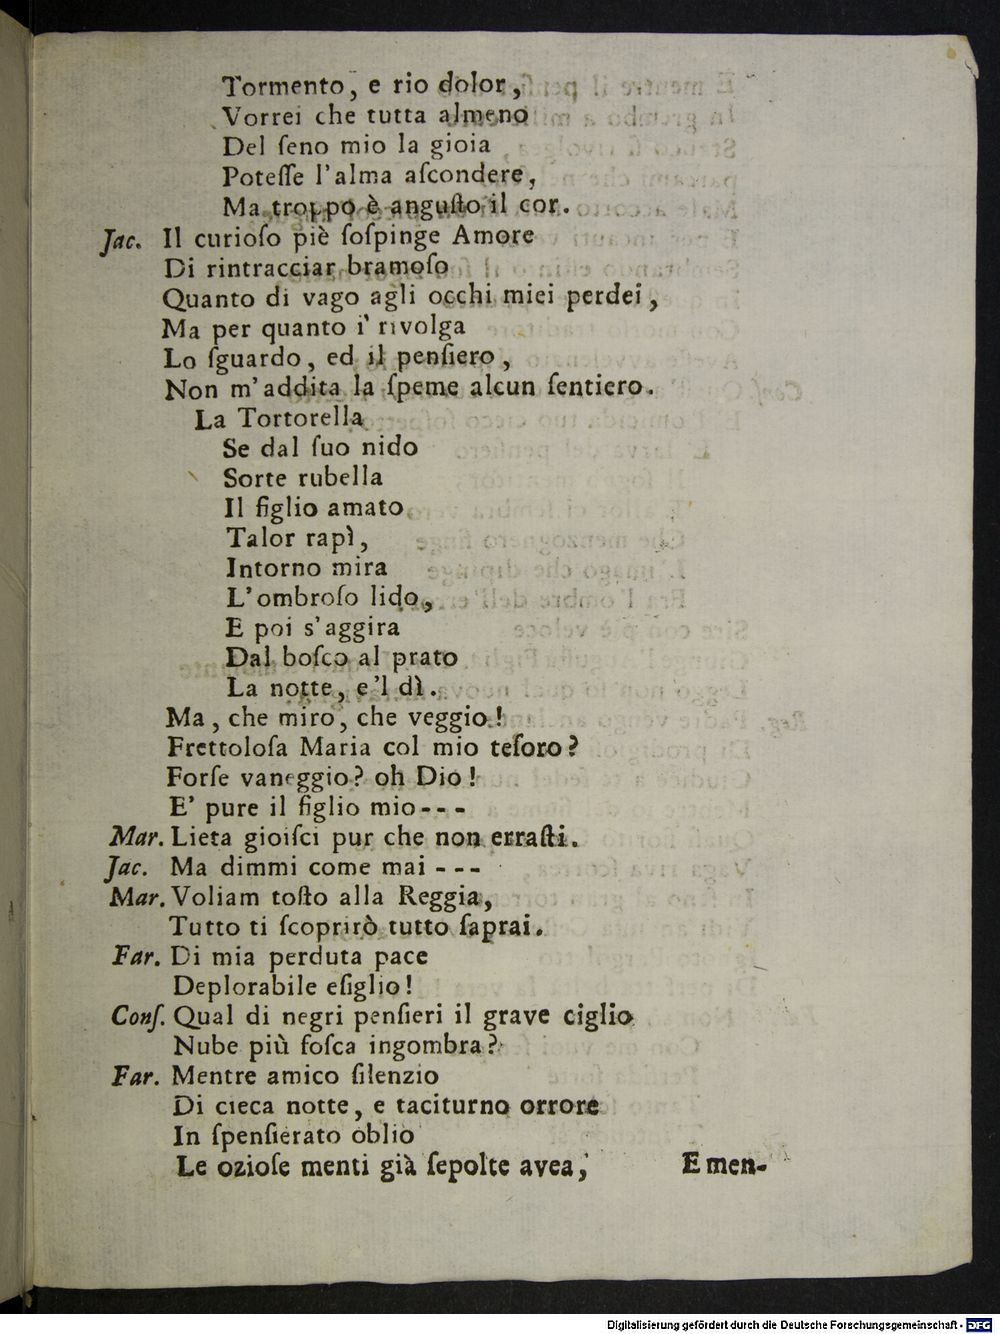 Tormento, e rio dolor,
Vorrei che tutta almeno
Del ſeno mio la gioia
Poteſſe l'alma aſcondere,
Ma troppo è anguſto il cor.
Jac. Il curioſo piè ſoſpinge Amore
Di rintracciar bramoſo
Quanto di vago agli occhi miei perdei,
Ma per quanto i' rivolga
Lo ſguardo, ed il penſiero,
Non m'addita la ſpeme alcun ſentiero.
La Tortorella
Se dal ſuo nido
Sorte rubella
Il figlio amato
Talor rapì,
Intorno mira
L'ombroſo lido,
E poi s'aggira
Dal boſco al prato
La notte, e'l dì.
Ma, che miro, che veggio!
Frettoloſa Maria col mio teſoro?
Forſe vaneggio? oh Dio!
E' pure il figlio mio---
Mar. Lieta gioiſci pur che non erraſti.
Jac. Ma dimmi come mai ---
Mar. Voliam toſto alla Reggia,
Tutto ti ſcoprirò tutto ſaprai.
Far. Di mia perduta pace
Deplorabile eſiglio!
Conſ. Qual di negri penſieri il grave ciglio
Nube più foſca ingombra?
Far. Mentre amico ſilenzio
Di cieca notte, e taciturno orrore
In ſpenſierato oblio
Le ozioſe menti già ſepolte avea, E men-
Digitalisierung gefördert durch die Deutsche Forschungsgemeinschaft - DFG